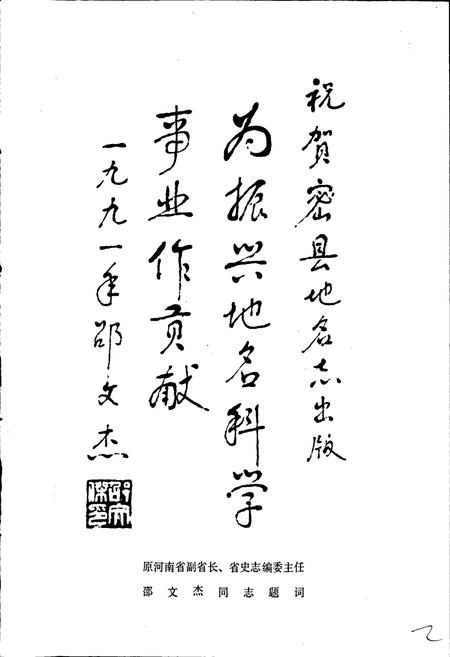 祝贺密县地名志出版
为振兴地名科学
事业作贡献
一九九一年邵文杰
邵文杰印
原河南省副省长、省史志编委主任
邵文杰同志题词